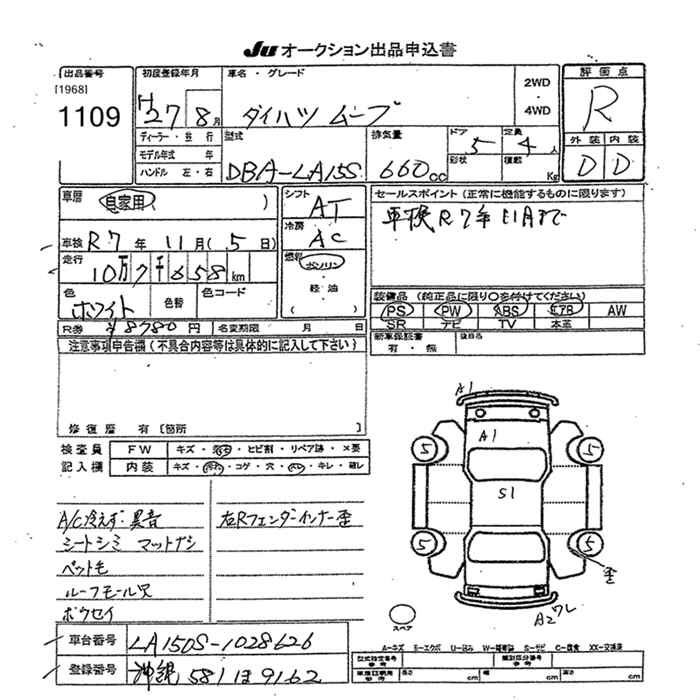 Ju オークション出品申込書
出品番号
[1968]
1109
初度登録年月
H27 8月
車名・グレード
ダイハツ ムーブ
2WD
・
4WD
評価点
R
外装 内装
D D
ディーラー・並行
モデル年式 年
ハンドル 左・右
型式
DBA-LA15S
排気量
660cc
ドア
5
形状
定員
4人
積載
Kg
車歴 自家用 )
車検 R7年 11月(5日)
走行
10万7千658km
色
ホワイト
色替
色コード
R券 ¥8780円 名変期限 月 日
シフト
AT
冷房
AC
燃料
ガソリン
・
軽油
( )
セールスポイント(正常に機能するものに限ります)
車検R7年11月まで
装備品(純正品に限り○を付けてください)
PS PW ABS エアB AW
SR ナビ TV 本革
新車保証書
有・無
後日品
注意事項申告欄(不具合内容等は具体的に記入して下さい)
修復歴 有[箇所 ]
検査員
記入欄
FW キズ・ ・ヒビ割・リペア跡・×要
内装 キズ・ ・コゲ・穴・ ・キレ・破レ
A/C冷えず・異音
シートシミ マットナシ
ペット毛
ルーフモール欠
ボウセイ
右Rフェンダーインナー歪
A1
A1
S1
5 5
5 5
歪
A2 ワレ
スペア
A=キズ E=エクボ U=凹み W=補修跡 S=サビ C=腐食 XX=交換済
車台番号 LA150S-1028626
登録番号 沖縄 581 ほ 9162
型式指定番号
参考
類別区分番号
参考
長さ cm 幅 cm 高さ cm